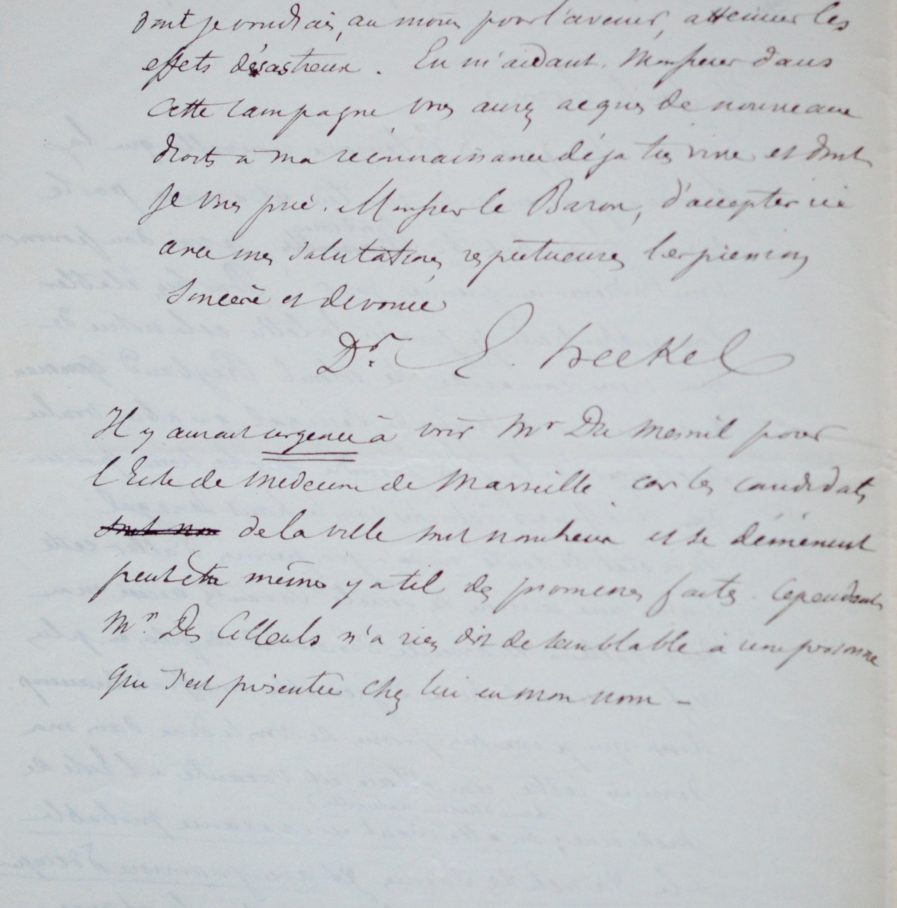 dont je voudrais, au moins pour l'avenir, atteinuer les
effets désastreux. En m'aidant, Monsieur dans
cette campagne vous aurez acquis de nouveaux
droits à ma reconnaissance déja très vive et dont
je vous prie, Monsieur le Baron, d'accepter ici
avec mes salutations respectueuses l'expression
sincère et devouée
Dr. E. Heckel
Il y aurait urgence à voir Mr Du Mesnil pour
l'Ecole de Medecine de Marseille car les candidats
sont nom de la ville sont nombreux et se démènent
peutêtre même y a til des promesses faites. Cependant
Mr. Des Cilleuls n'a rien dit de semblable à une personne
qui s'est présentée chez lui en mon nom -